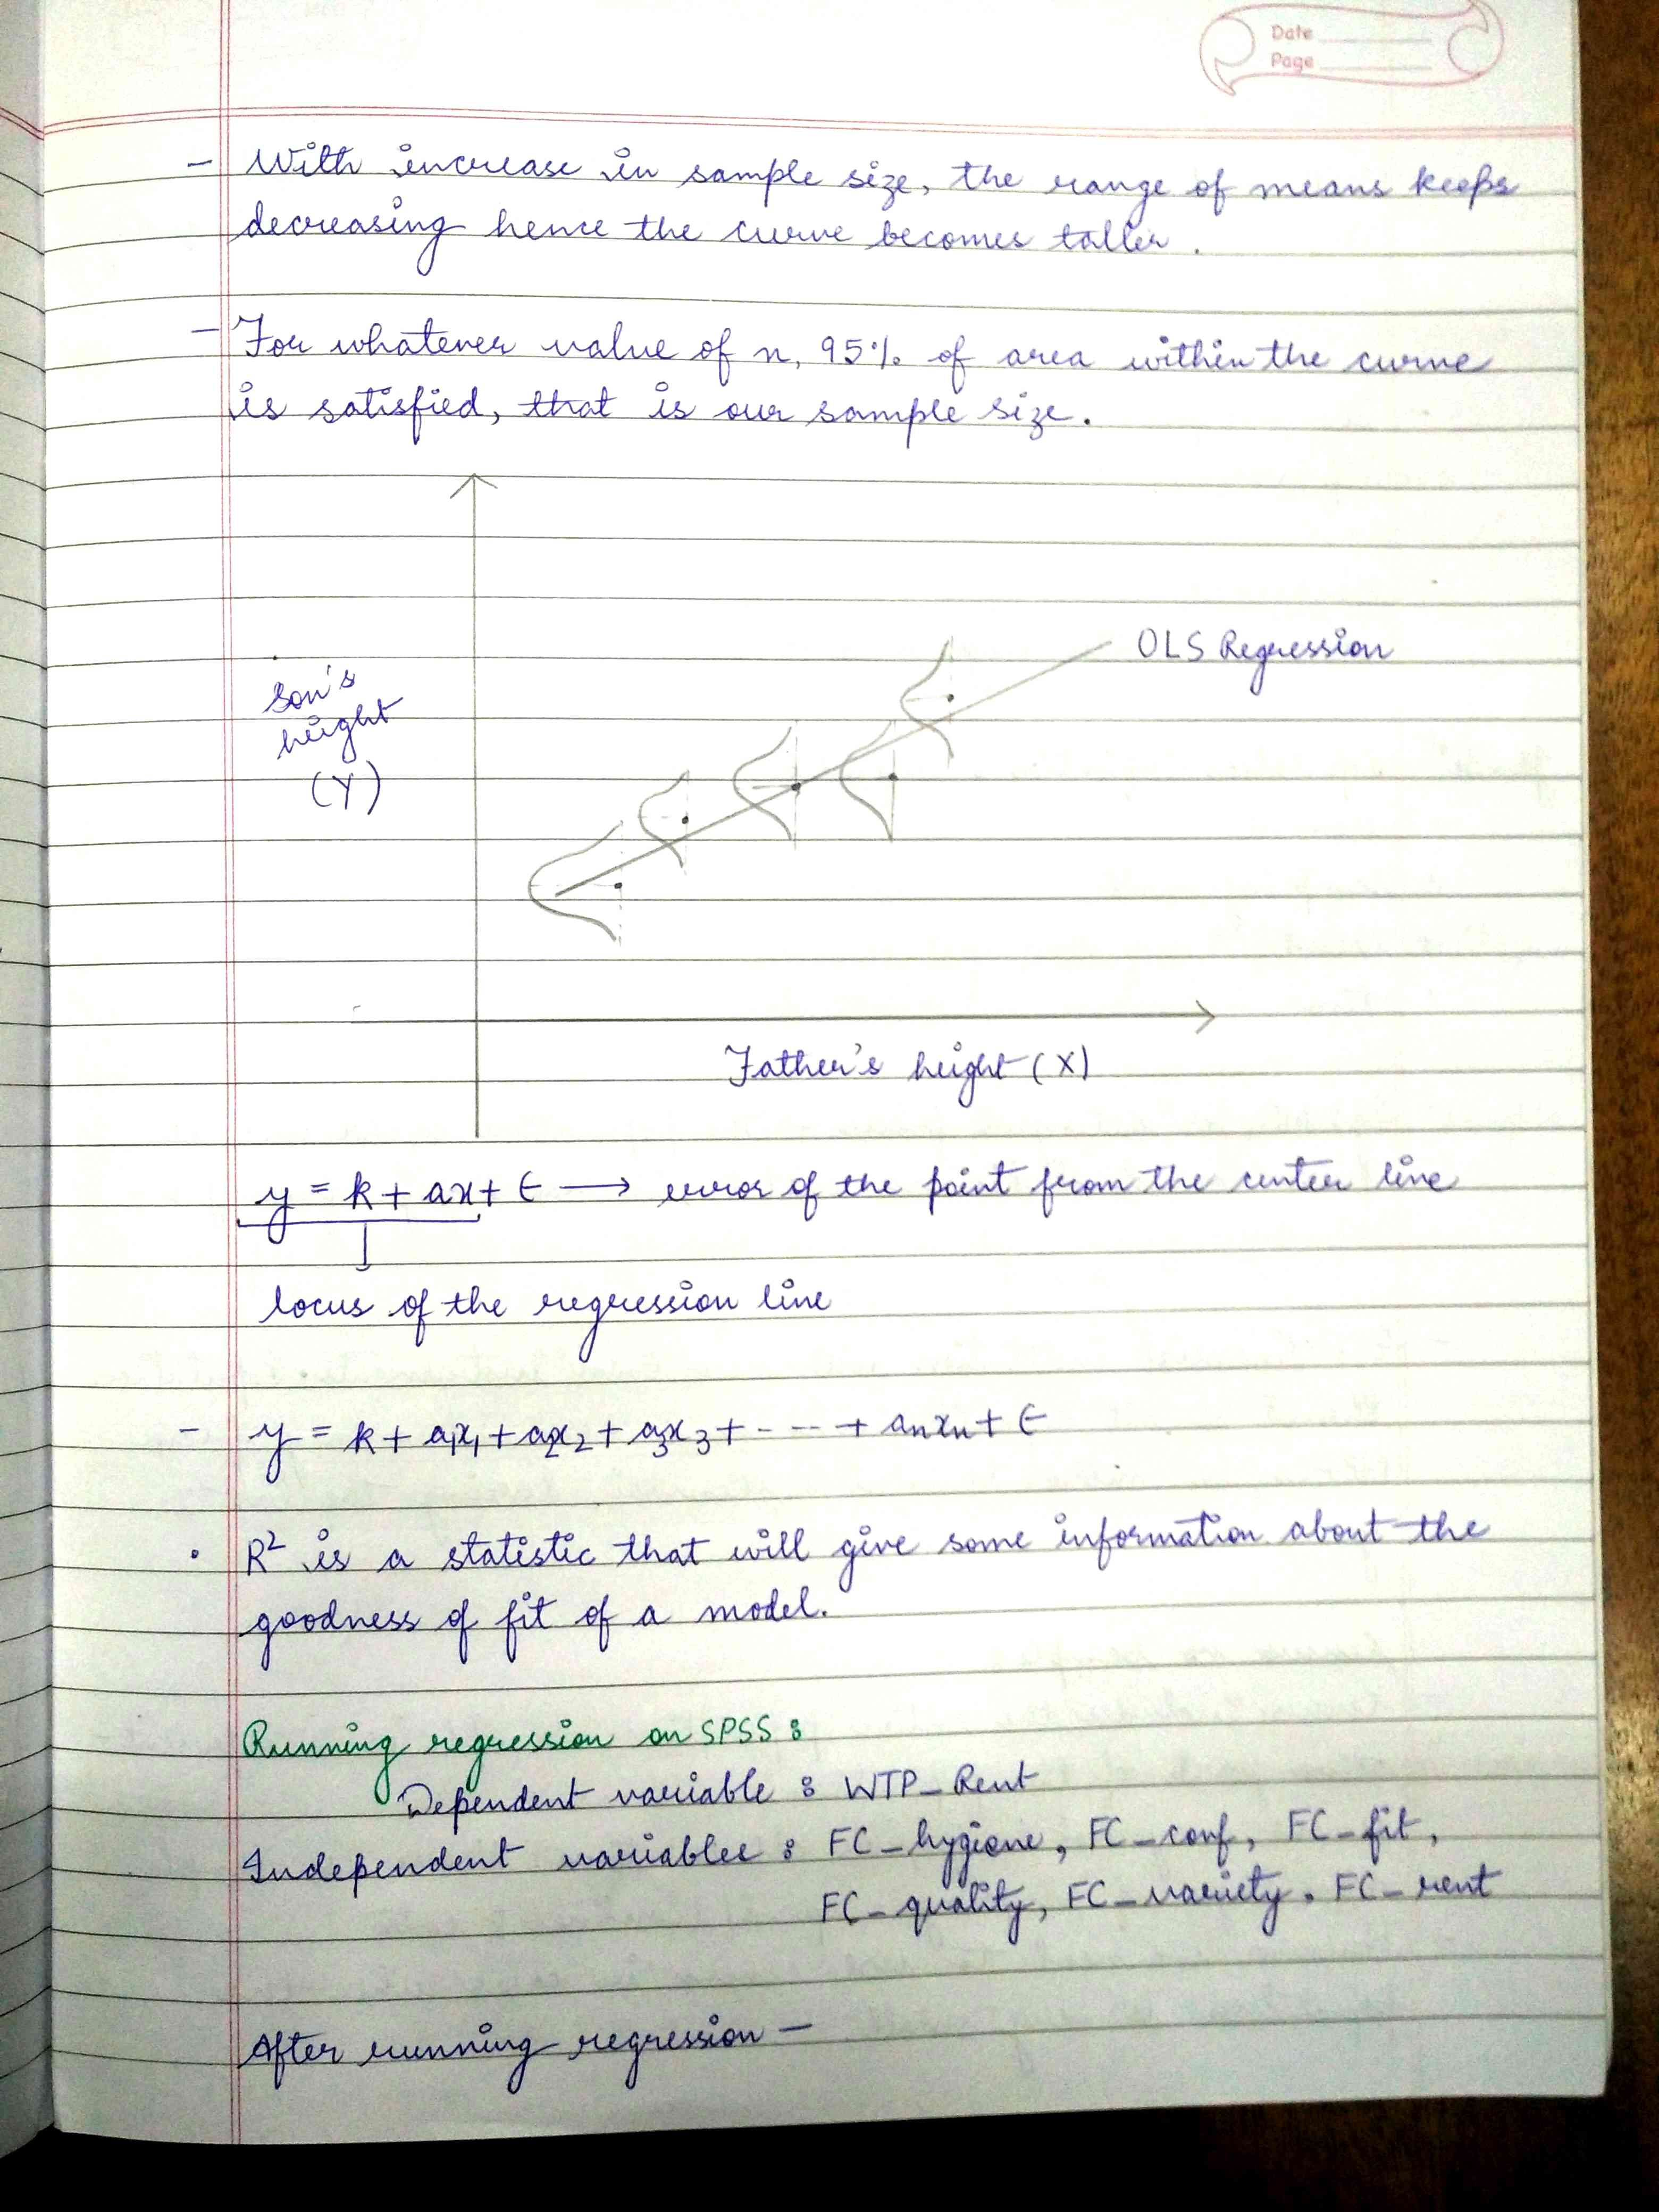 Date
Page
- With increase in sample size, the range of means keeps
decreasing hence the curve becomes taller.
- For whatever value of n, 95% of area within the curve
is satisfied, that is our sample size.
OLS Regression
Son's
height
(Y)
Father's height (X)
y = k + ax + ε → error of the point from the center line
locus of the regression line
- y = k + a₁x₁ + a₂x₂ + a₃x₃ + - - - + aₙxₙ + ε
• R² is a statistic that will give some information about the
goodness of fit of a model.
Running regression on SPSS :
Dependent variable : WTP_Rent
Independent variables : FC_hygiene, FC_conf, FC_fit,
FC_quality, FC_variety, FC_rent
After running regression -